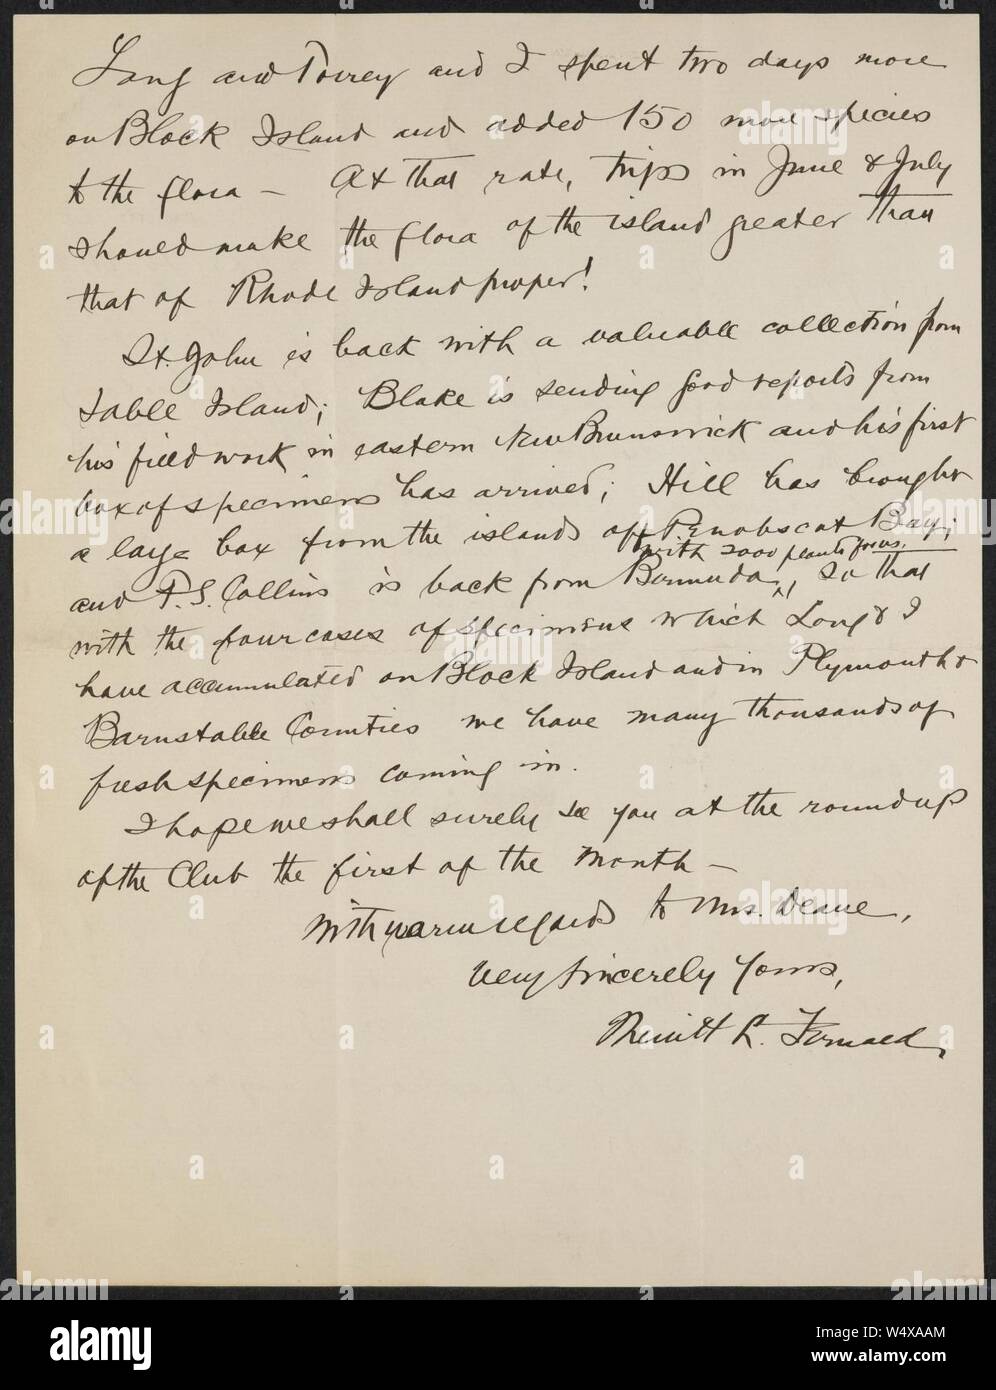 Long and Torrey and I spent two days more
on Block Island and added 150 more species
to the flora — At that rate, trips in June & July
should make the flora of the island greater than
that of Rhode Island proper!
St. John is back with a valuable collection from
Sable Island; Blake is sending good reports from
his field work in eastern New Brunswick and his first
box of specimens has arrived; Hill has brought
a large box from the islands off Penobscot Bay;
with 2000 plants
and F.S. Collins is back from Bermuda, so that
with the four cases of specimens which Long & I
have accumulated on Block Island and in Plymouth &
Barnstable Counties we have many thousands of
fresh specimens coming in.
I hope we shall surely see you at the round up
of the Club the first of the month —
With warm regards to Mrs. Deane,
Very sincerely yours,
Merritt L. Fernald.
alamy
Image ID: W4XAAM
www.alamy.com